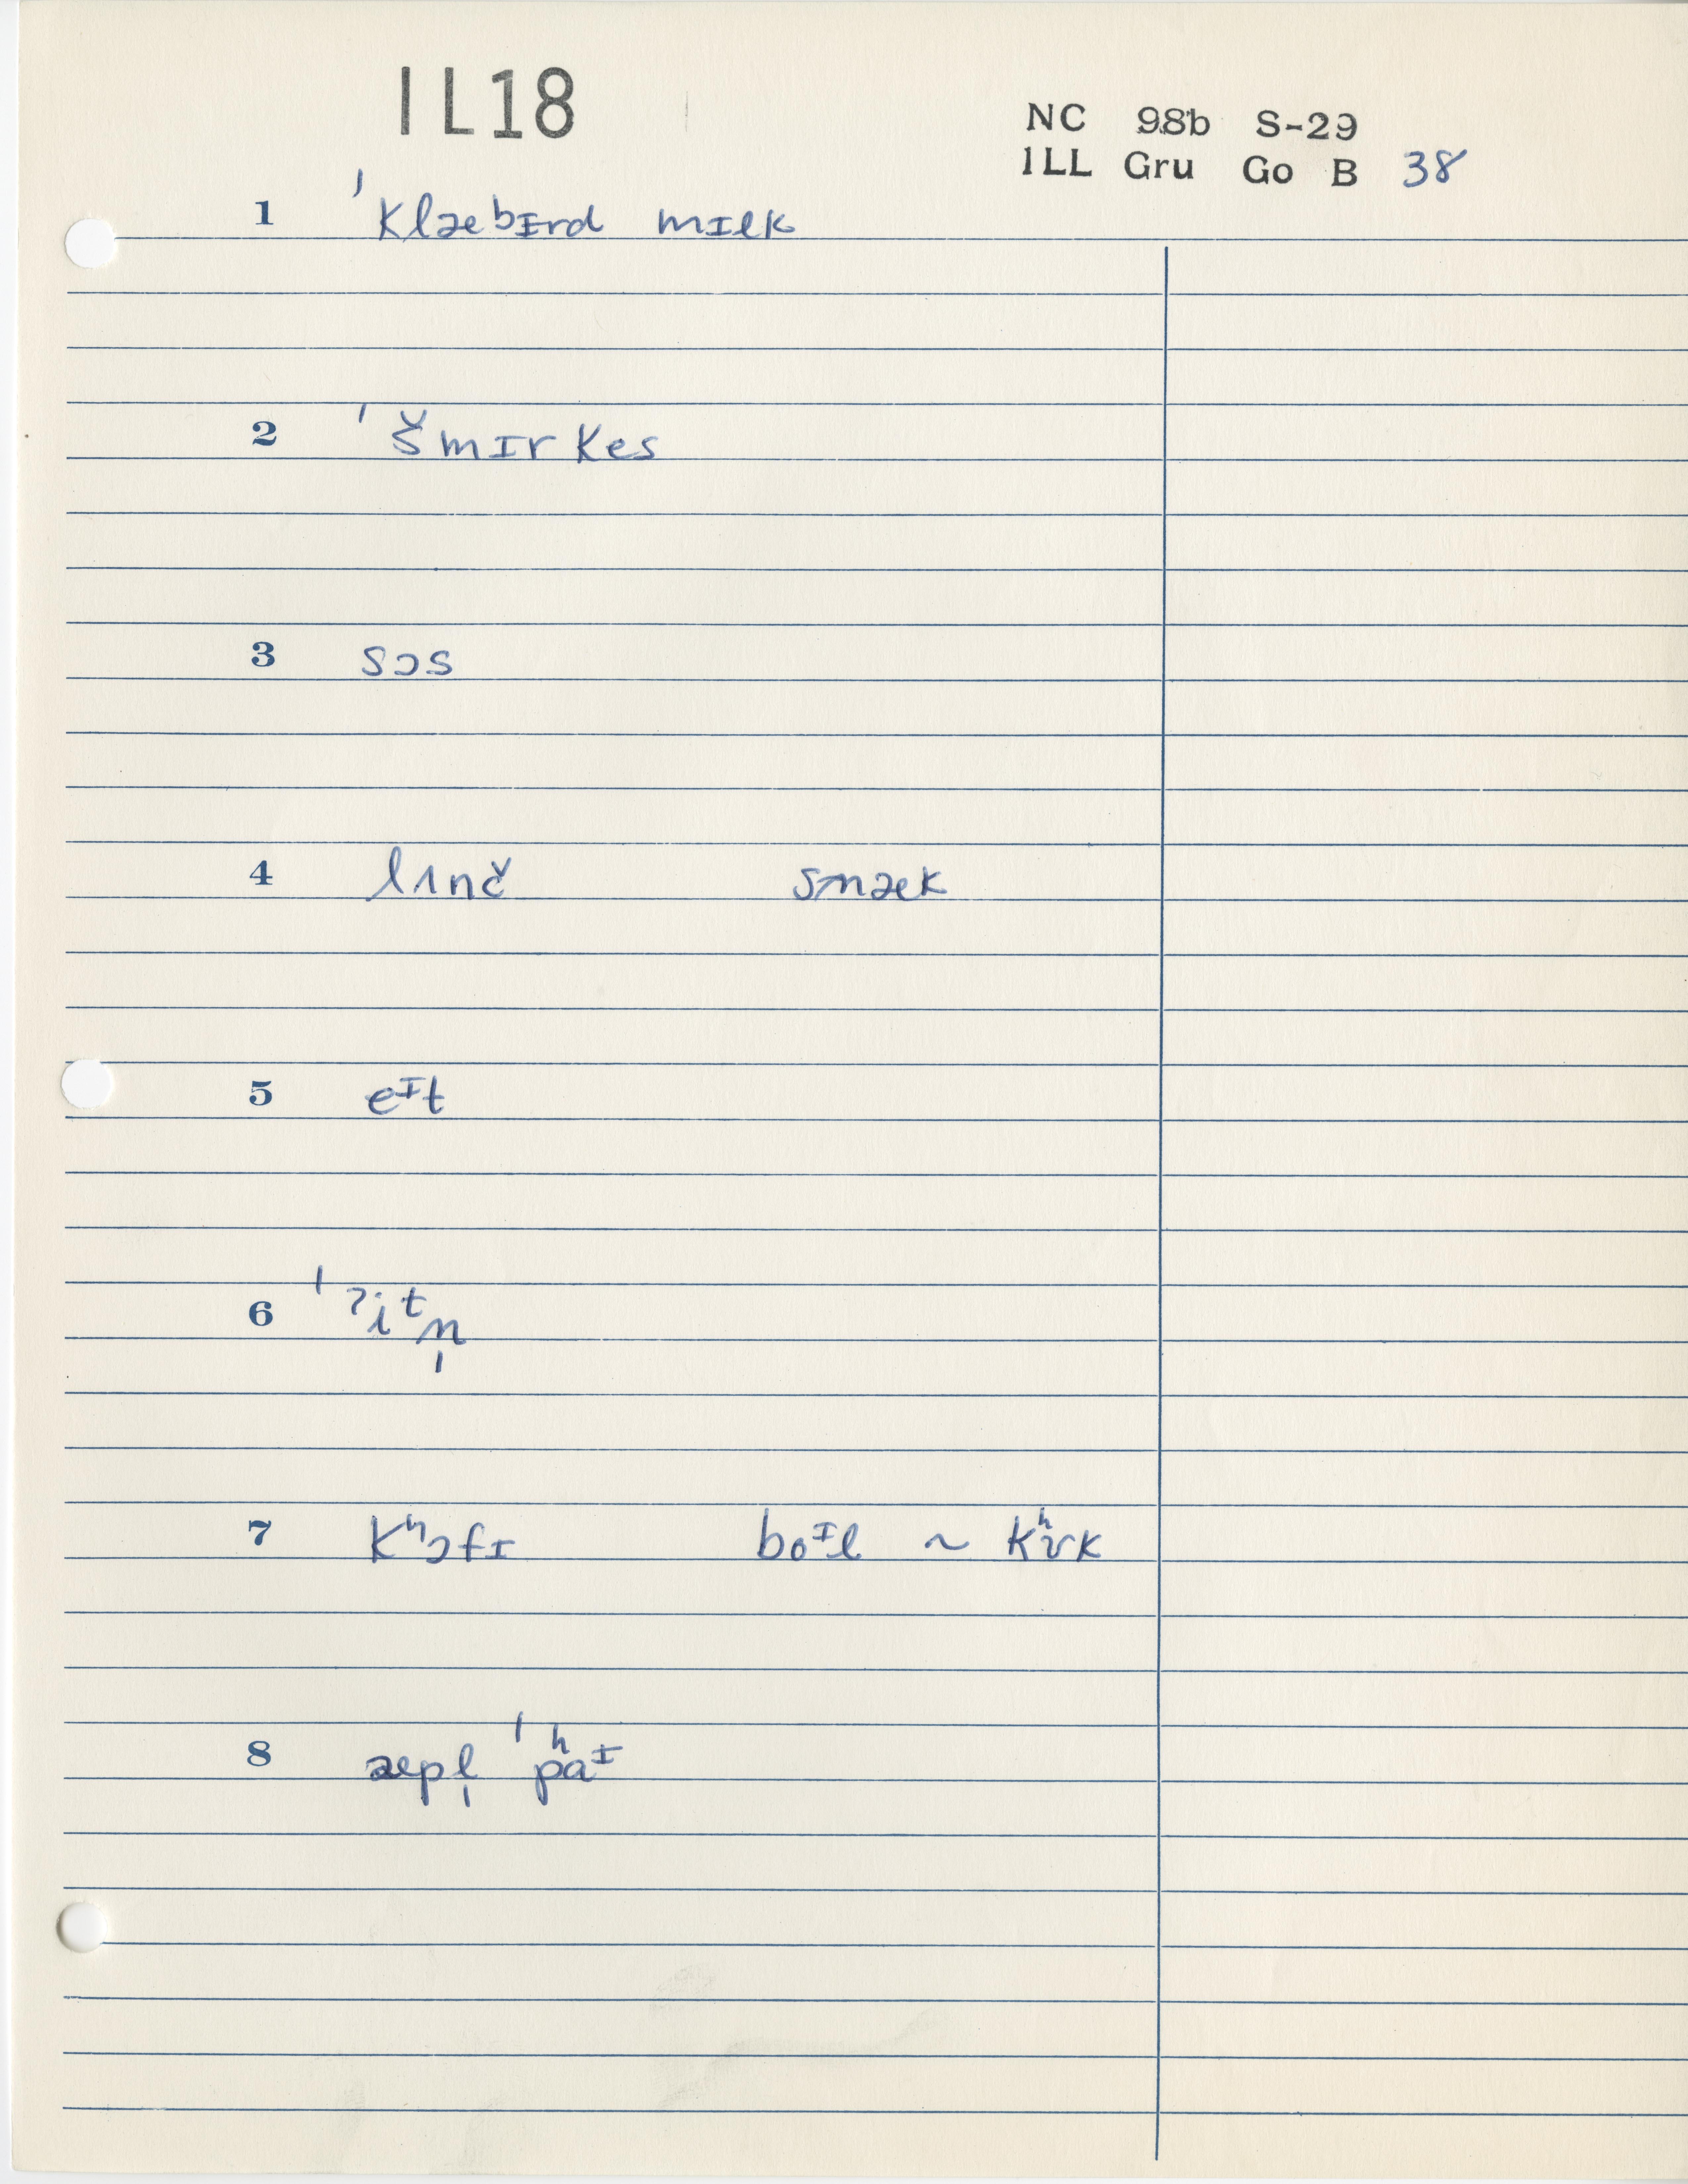 IL18
NC 98b S-29
ILL Gru Go B 38
1 ˈklæbɪrd mɪlk
2 ˈšmɪrkes
3 sɔs
4 lʌnč snæk
5 eᶦt
6 ˈʔitn̩
7 kʰɔfɪ boᶦl ~ kʰʊk
8 æpl̩ ˈpʰaᶦ